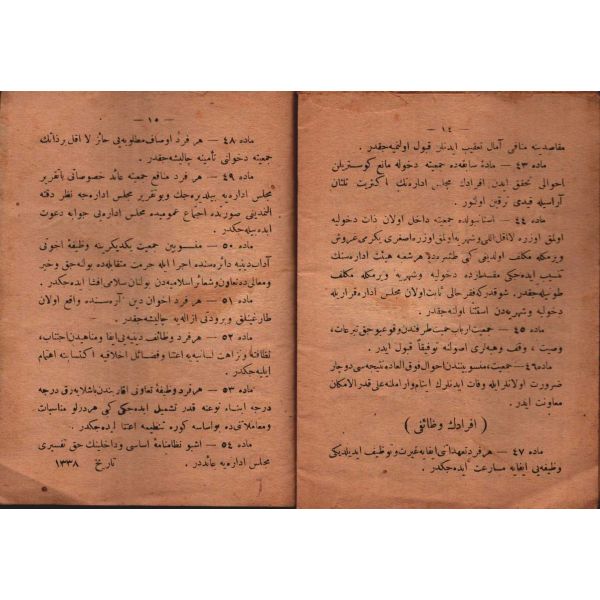 — ١٤ —
مقاصدينه منافى آمال تعقيب ايدنلر قبول اولنميه‌جقدر.
ماده ٤٣ — مادۀ سابقه‌ده جمعيته دخوله مانع كوستريلن
احوالى تحقق ايدن افرادك مجلس اداره‌نك اكثريت ثلثان
آراسيله قيدى ترقين اولنور.
ماده ٤٤ — استانبولده جمعيته داخل اولان ذات دخوليه
اولمق اوزره لااقل اللى وشهريه اولمق اوزره اصغرى يكرمى غروش
ويرمكه مكلف اولديغى كبى طشره‌ده هر شعبه هيئت اداره‌سنك
تنسيب ايده‌جكى مقسطارده دخوليه وشهريه ويرمكه مكلف
طوتيله‌جقدر. شوقدركه فقر حالى ثابت اولانلر مجلس ادارۀ قراريله
دخوليه وشهريه‌دن استثنا اولنه‌جقدر.
ماده ٤٥ — جمعيت ارباب حميت طرفندن وقوعبولەجق تبرعات،
وصيت، وقف وهبه‌لرى اصولنه توفيقاً قبول ايدر.
ماده ٤٦ — جمعيت، منسوبيندن احوال فوق العاده نتيجه‌سى دوچار
ضرورت اولانلرايله وفات ايدنلرك ايتام وارامله‌نه على قدر الامكان
معاونت ايدر.
( افرادك وظائفى )
ماده ٤٧ — هر فرد تعهداتنى ايفايه غيرت وتوظيف ايديلديكى
وظيفه‌يى ايفايه مسارعت ايده‌جكدر.
— ١٥ —
ماده ٤٨ — هر فرد اوصاف مطلوبه‌يى حائز لا اقل بر ذاتك
جمعيته دخولنى تأمينه چاليشه‌جقدر.
ماده ٤٩ — هر فرد منافع جمعيته عائد خصوصاتى باتقرير
مجلس اداره‌يه بيلديره‌جك وبو تقرير مجلس اداره‌جه نظر دقته
النمديغى صورتده اجتماع عموميده مجلس اداره‌يى جوابه دعوت
ايده‌بيله‌جكدر.
ماده ٥٠ — منسوبين جمعيت يكديكرينه وظيفۀ اخوتى
آداب دينيه دائره‌سنده اجرا ايله حرمت متقابله‌ده بولنه‌جق وخبر
ومعالى‌ده تعاون وشعائر اسلاميه‌دن بولنان سلامى افشا ايده‌جكدر.
ماده ٥١ — هر فرد اخوان دين آره‌سنده واقع اولان
طارغينلق وبرودتى ازاله‌يه چاليشه‌جقدر.
ماده ٥٢ — هر فرد وظائف دينيه‌يى ايفا ومناهيدن اجتناب،
نظافته ونزاهت لسانيه‌يه اعتنا وفضائل اخلاقيه اكتسابنه اهتمام
ايليه‌جكدر.
ماده ٥٣ — هر فرد وظيفۀ تعاونى اقاربندن باشلايه‌رق درجه
درجه ابناء نوعنه قدر تشميل ايده‌جكى كبى هر درلو مناسبات
ومعاملاتى‌ده بواساسه كوره تنظيمه اعتنا ايده‌جكدر.
ماده ٥٤ — اشبو نظامنامۀ اساسى وداخلينك حق تفسيرى
مجلس اداره‌يه عائددر. تاريخ ١٣٣٨